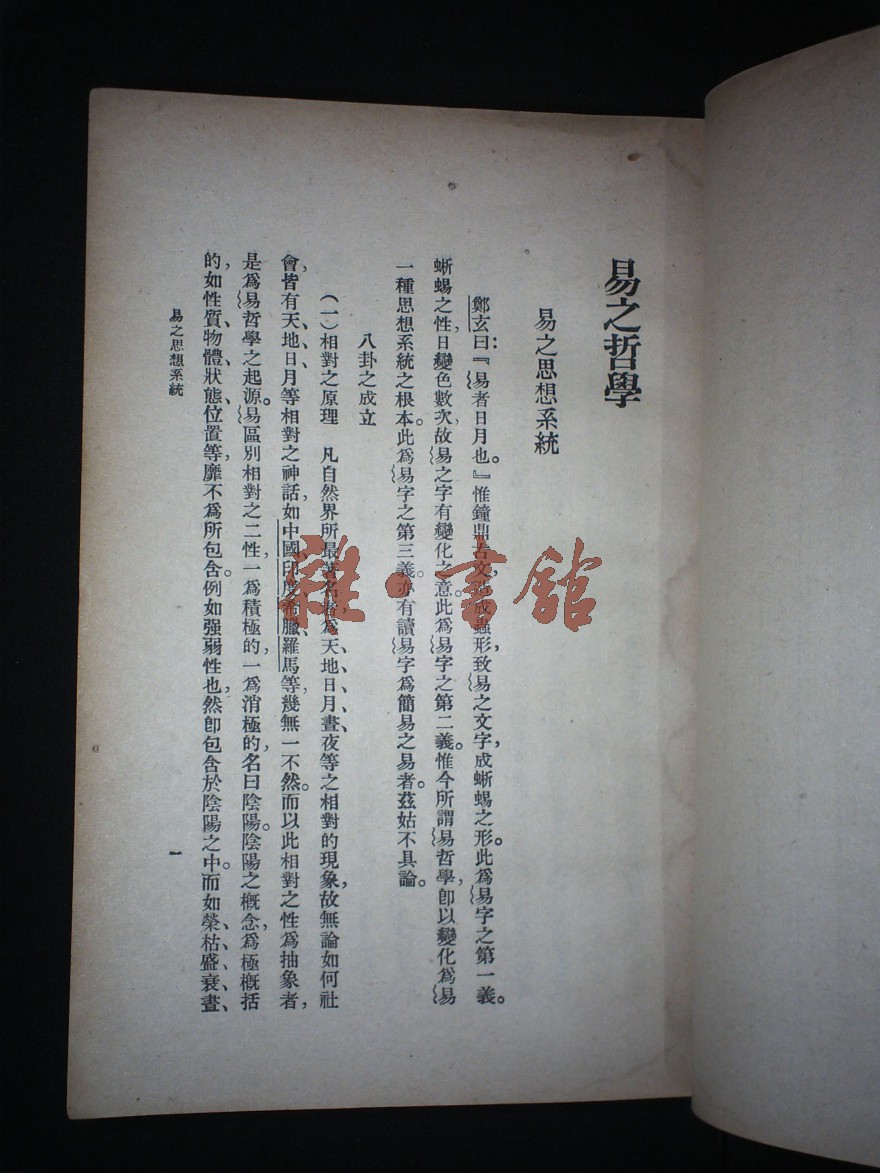 易之哲學
易之思想系統
鄭玄曰:『易者日月也。』惟鐘鼎古文,造成蟲形,致易之文字,成蜥蜴之形。此爲易字之第一義。
蜥蜴之性,日變色數次,故易之字有變化之意。此爲易字之第二義。惟今所謂易哲學,卽以變化爲易
一種思想系統之根本。此爲易字之第三義。亦有讀易字爲簡易之易者。茲姑不具論。
八卦之成立
(一)相對之原理 凡自然界所最著名者,爲天、地、日、月、晝、夜等之相對的現象,故無論如何社
會,皆有天、地、日、月等相對之神話,如中國、印度、希臘、羅馬等,幾無一不然。而以此相對之性爲抽象者,
是爲易哲學之起源。易區別相對之二性,一爲積極的,一爲消極的,名曰陰陽。陰陽之槪念,爲極槪括
的,如性質、物體、狀態、位置等,靡不爲所包含。例如强弱性也,然卽包含於陰陽之中。而如榮、枯、盛、衰、晝、
易之思想系統
一
雜·書館